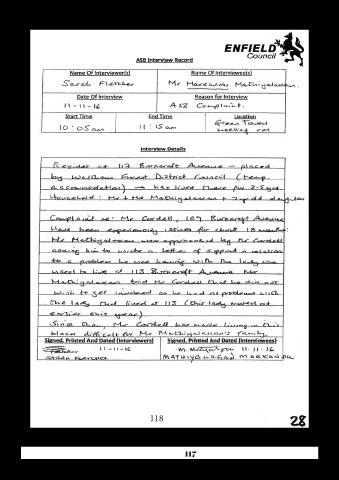 ENFIELD
Council
ASB Interview Record
Name Of Interviewer(s) Name Of Interviewee(s)
Sarah Fletcher Mr Markandu Mathiyalagan.
Date Of Interview Reason for Interview
11-11-16 ASB Complaint.
Start Time End Time Location
10:05am 11:15am Green Towers
meeting room
Interview Details
Resides at 117 Burncroft Avenue - placed
by Waltham Forest District Council (temp.
accommodation) → has lived there for 2.5 yrs.
Household: Mr + Mrs Mathiyalagan + 7yr old daughter
Complaint re: Mr Cordell, 109 Burncroft Avenue
Have been experiencing issues for about 18 months.
Mr Mathiyalagan was approached by Mr Cordell
asking him to write a letter of support in relation
to a problem he was having with the lady who
used to live at 113 Burncroft Avenue. Mr
Mathiyalagan told Mr Cordell that he did not
wish to get involved as he had no problems with
the lady that lived at 113 (this lady moved out
earlier this year).
Since then, Mr Cordell has made living in this
block difficult for Mr Mathiyalagan's family.
Signed, Printed And Dated (Interviewers) Signed, Printed And Dated (Interviewees)
11-11-16 11.11.16
SARAH FLETCHER MATHIYALAGAN MARKANDU
118
28
117